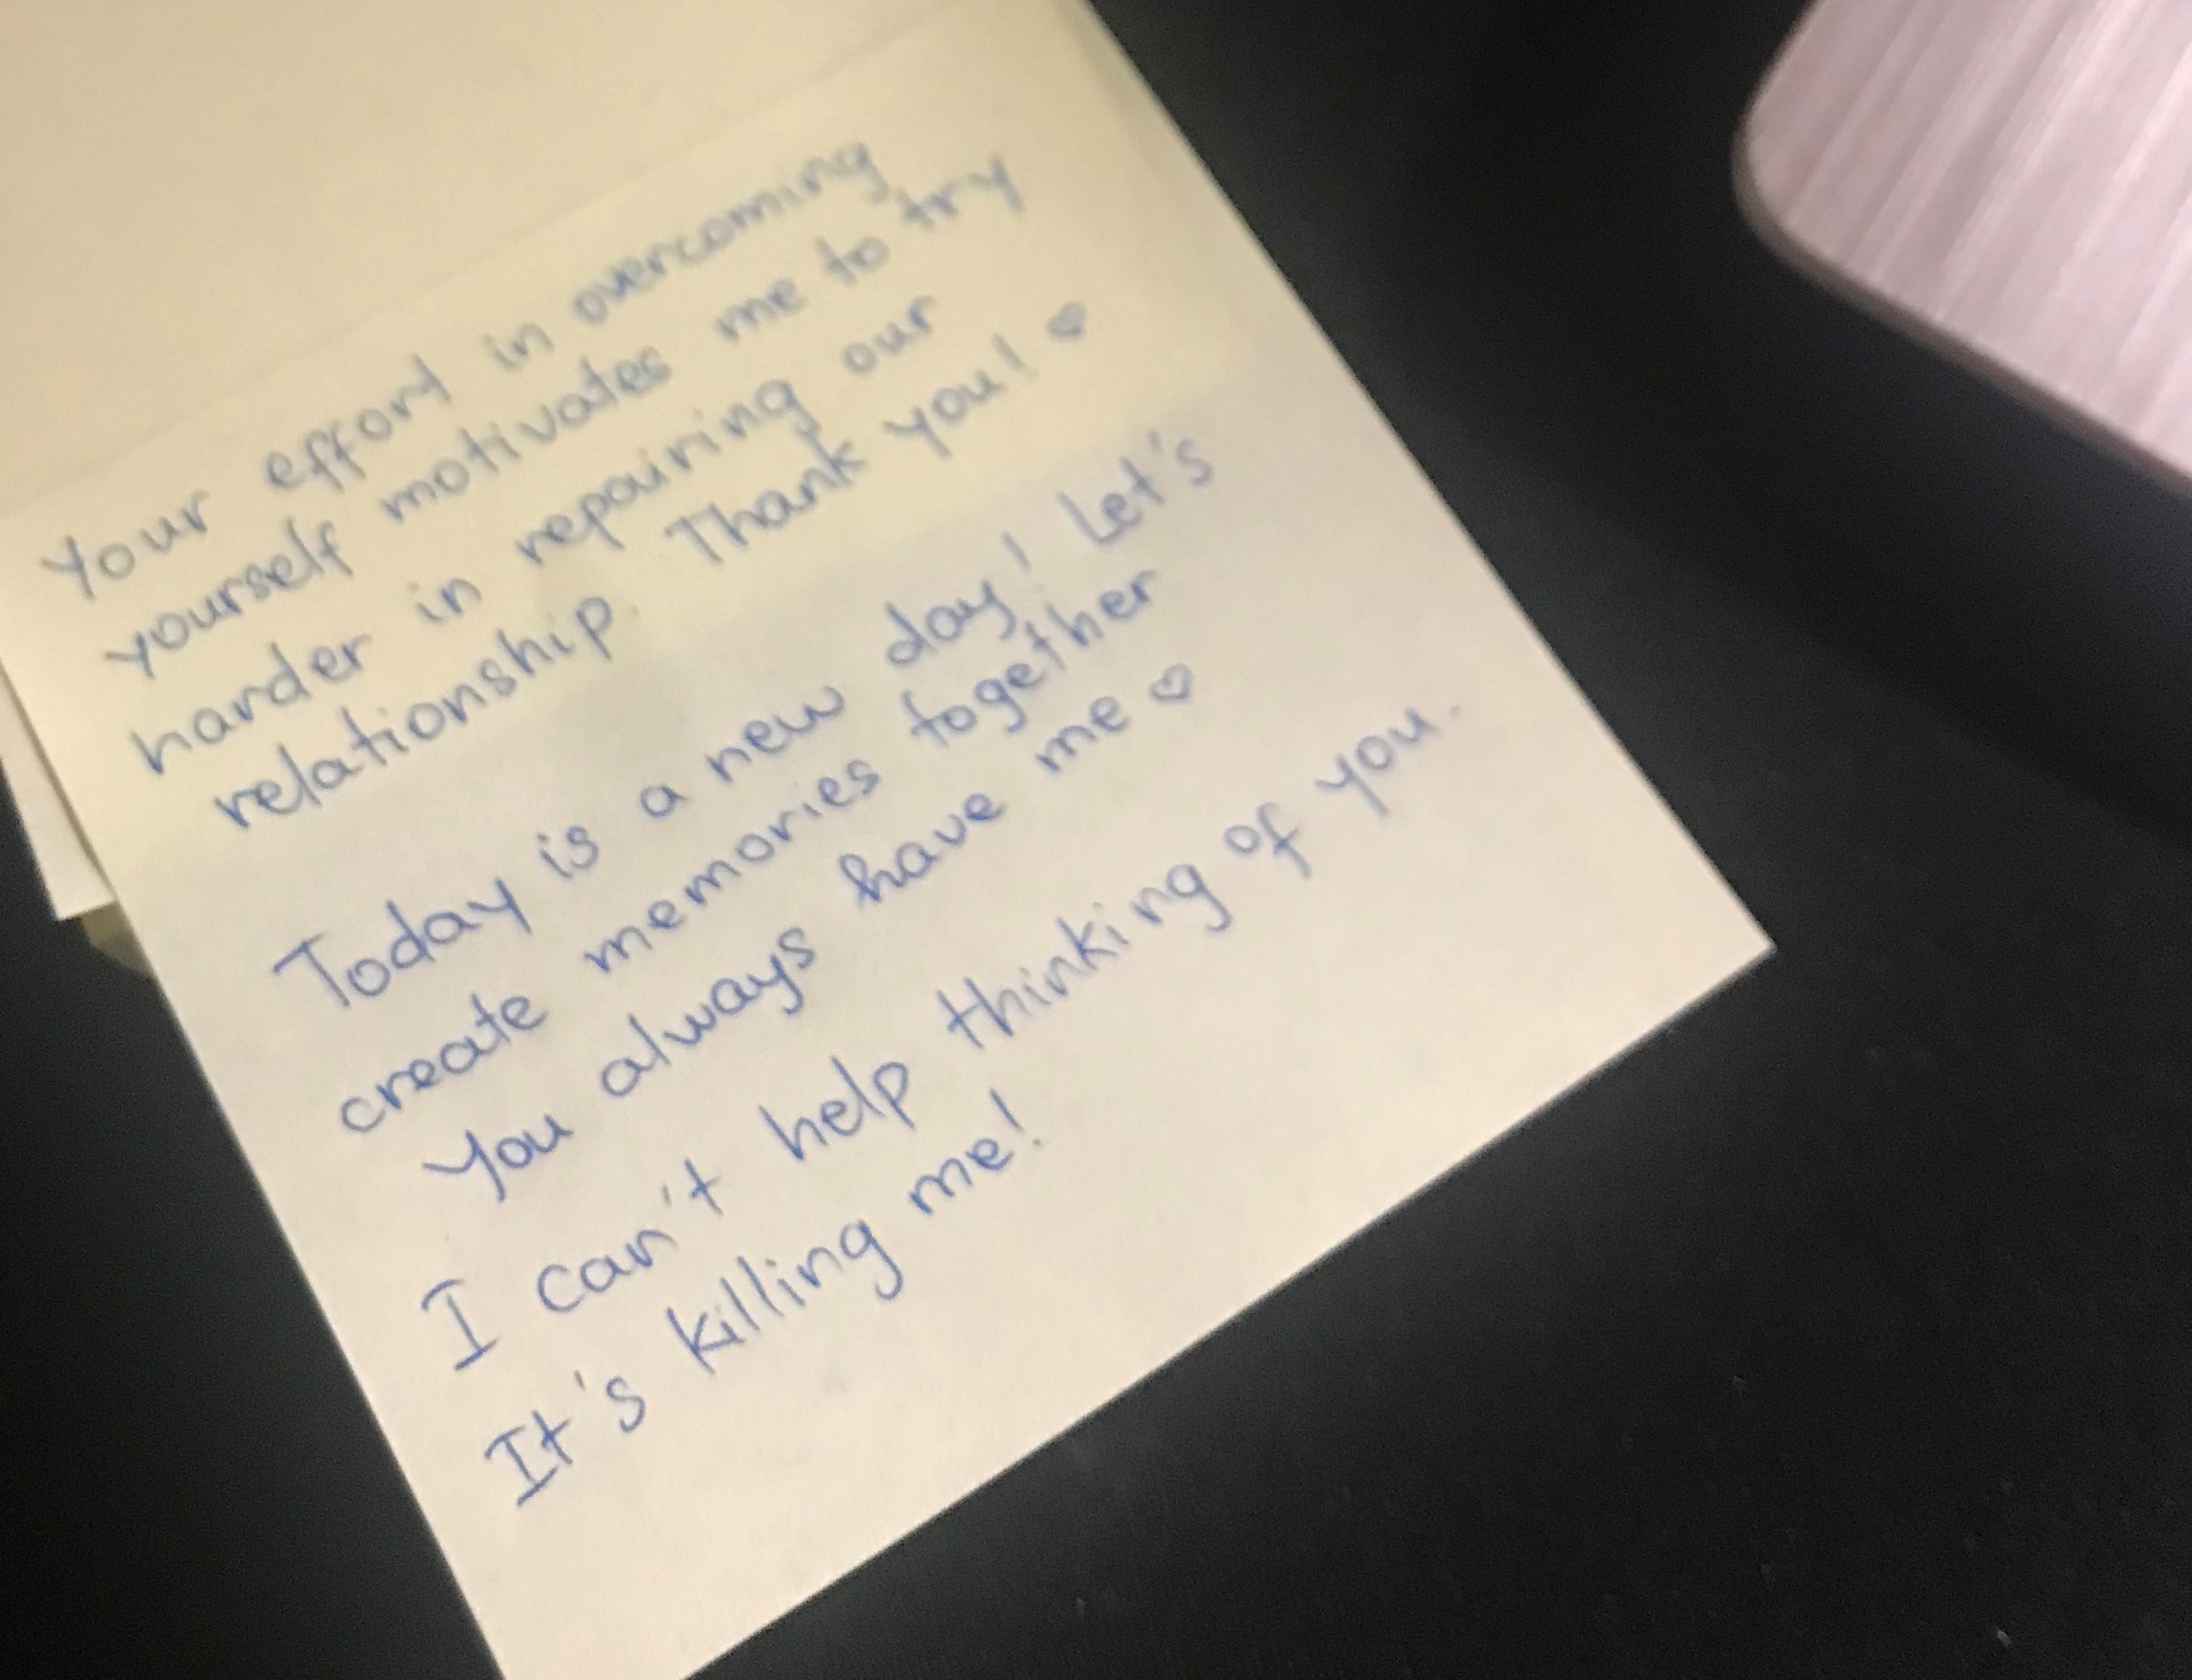 Your effort in overcoming
yourself motivates me to try
harder in repairing our
relationship. Thank you! ♥
Today is a new day! Let's
create memories together
You always have me ♥
I can't help thinking of you.
It's killing me!